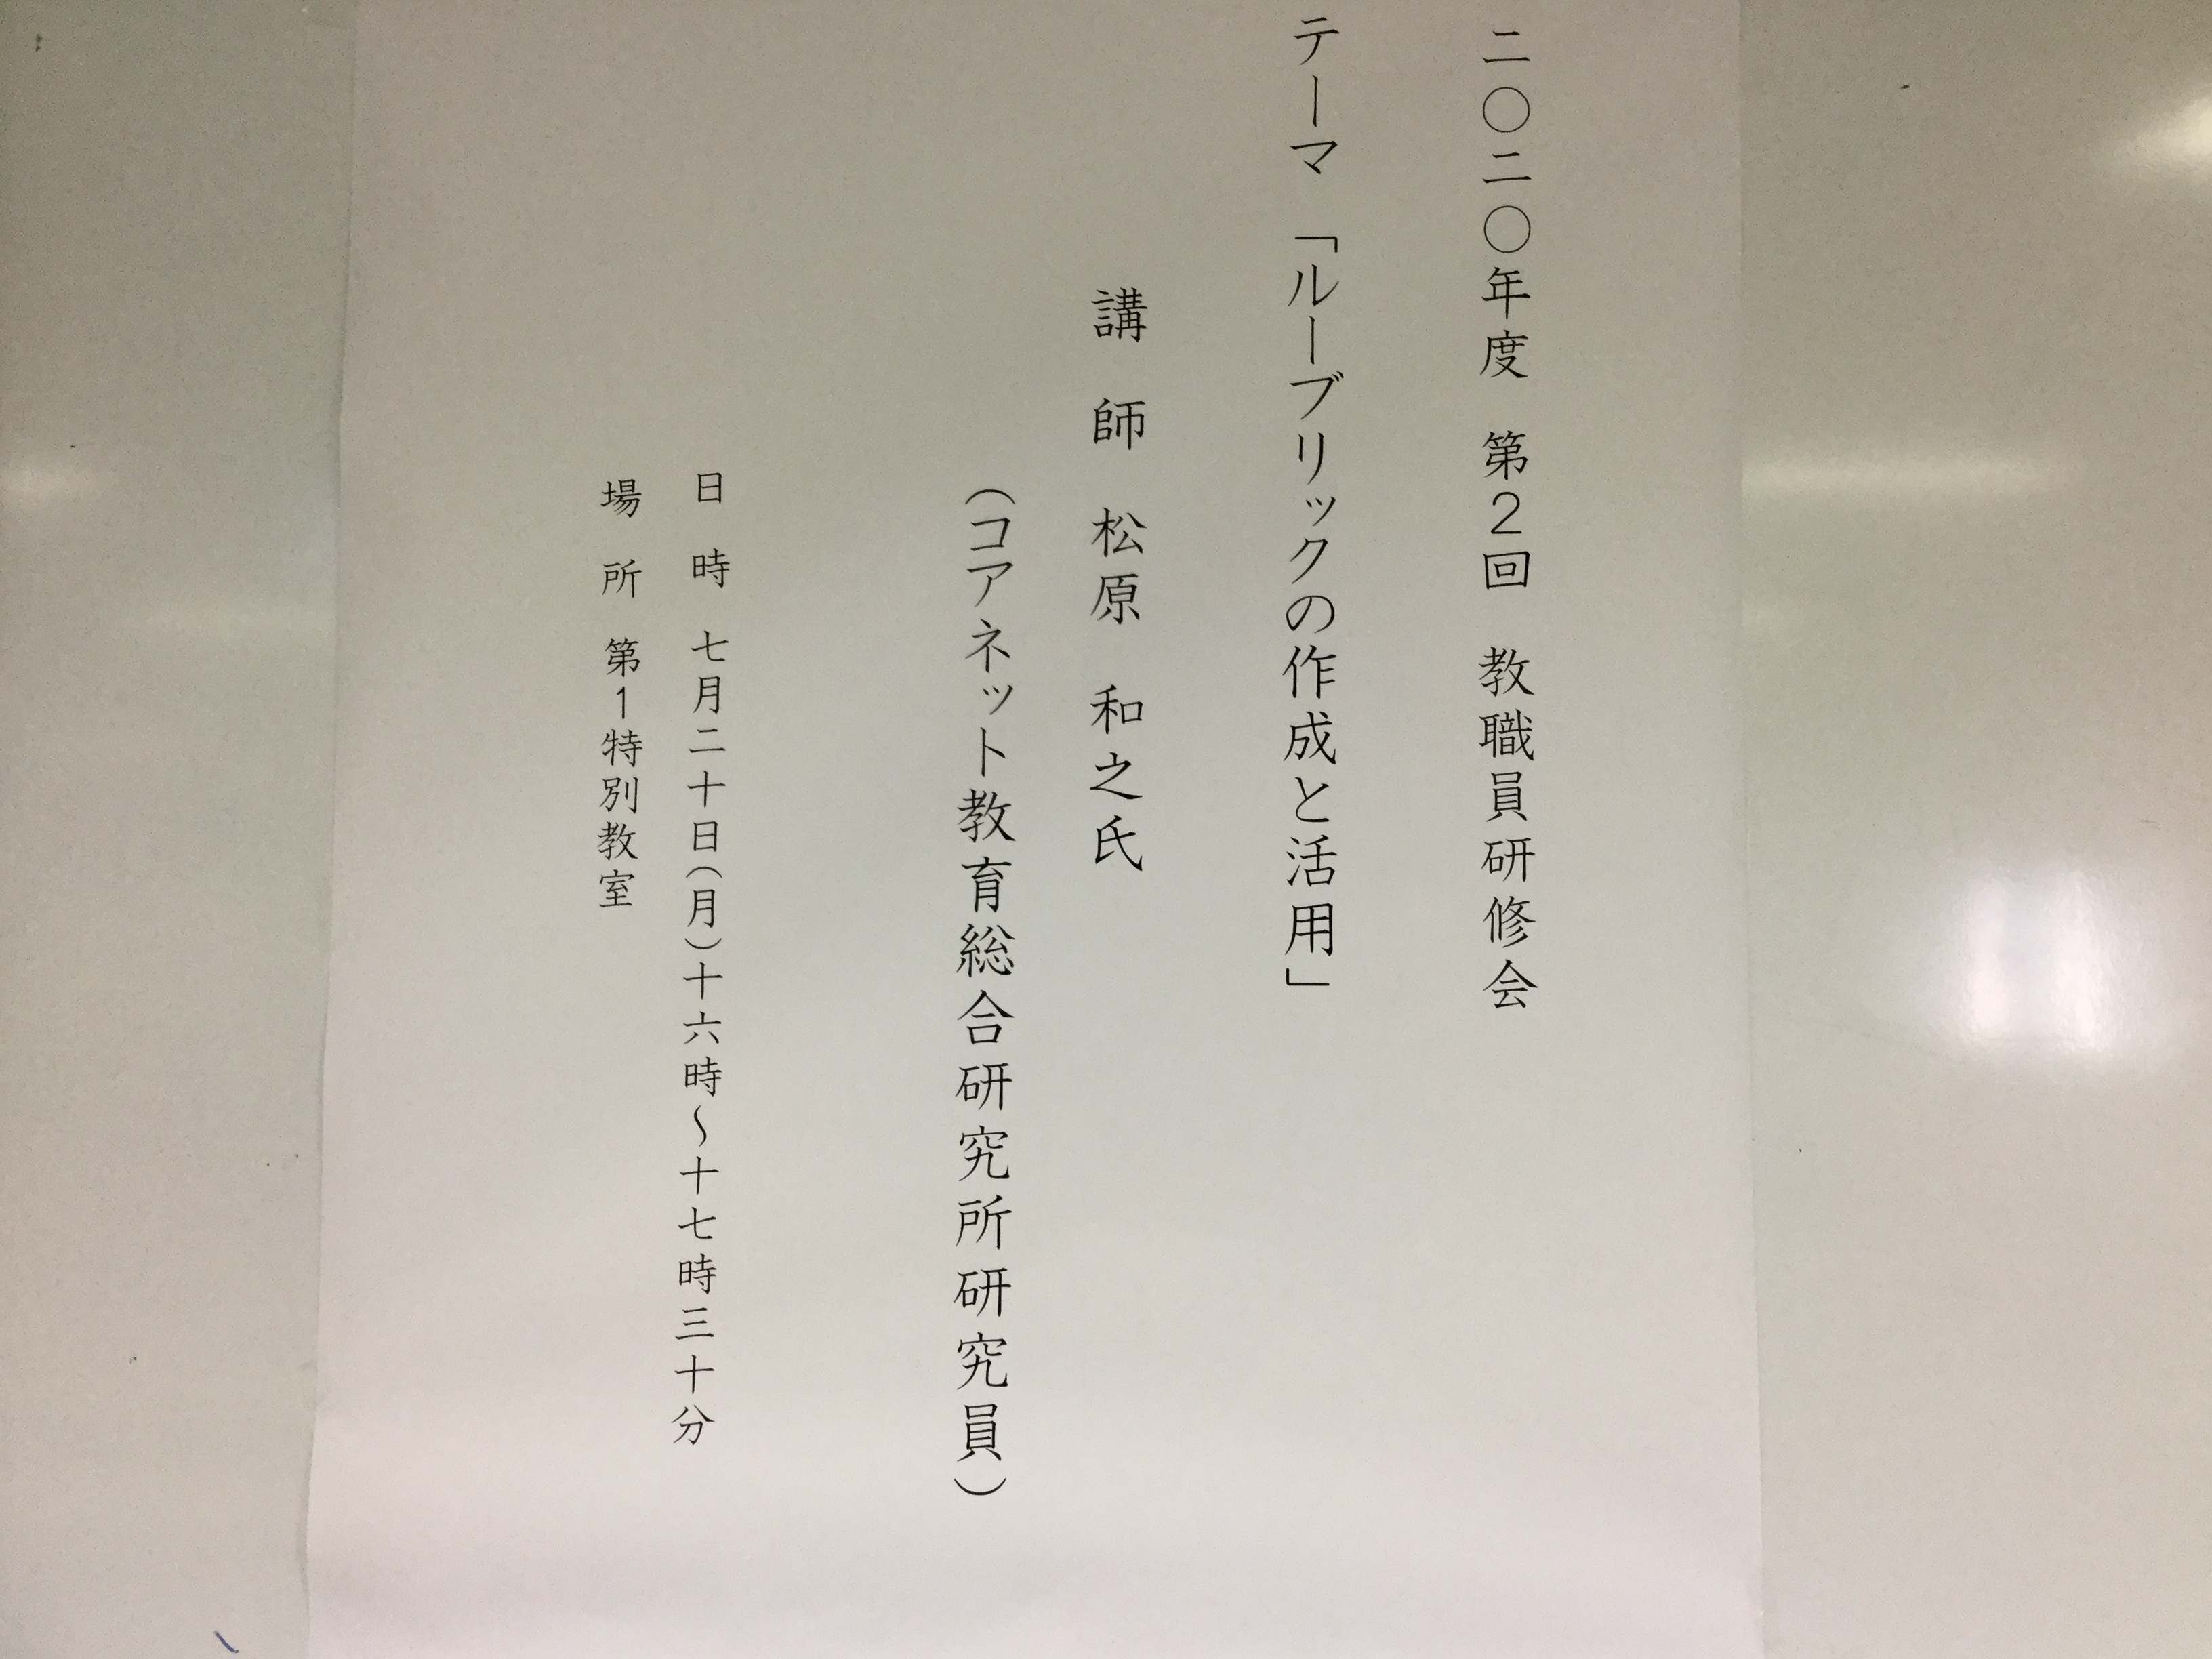 二〇二〇年度　第２回　教職員研修会
テーマ「ルーブリックの作成と活用」
講　師　松原　和之氏
（コアネット教育総合研究所研究員）
日　時　七月二十日（月）十六時～十七時三十分
場　所　第１特別教室